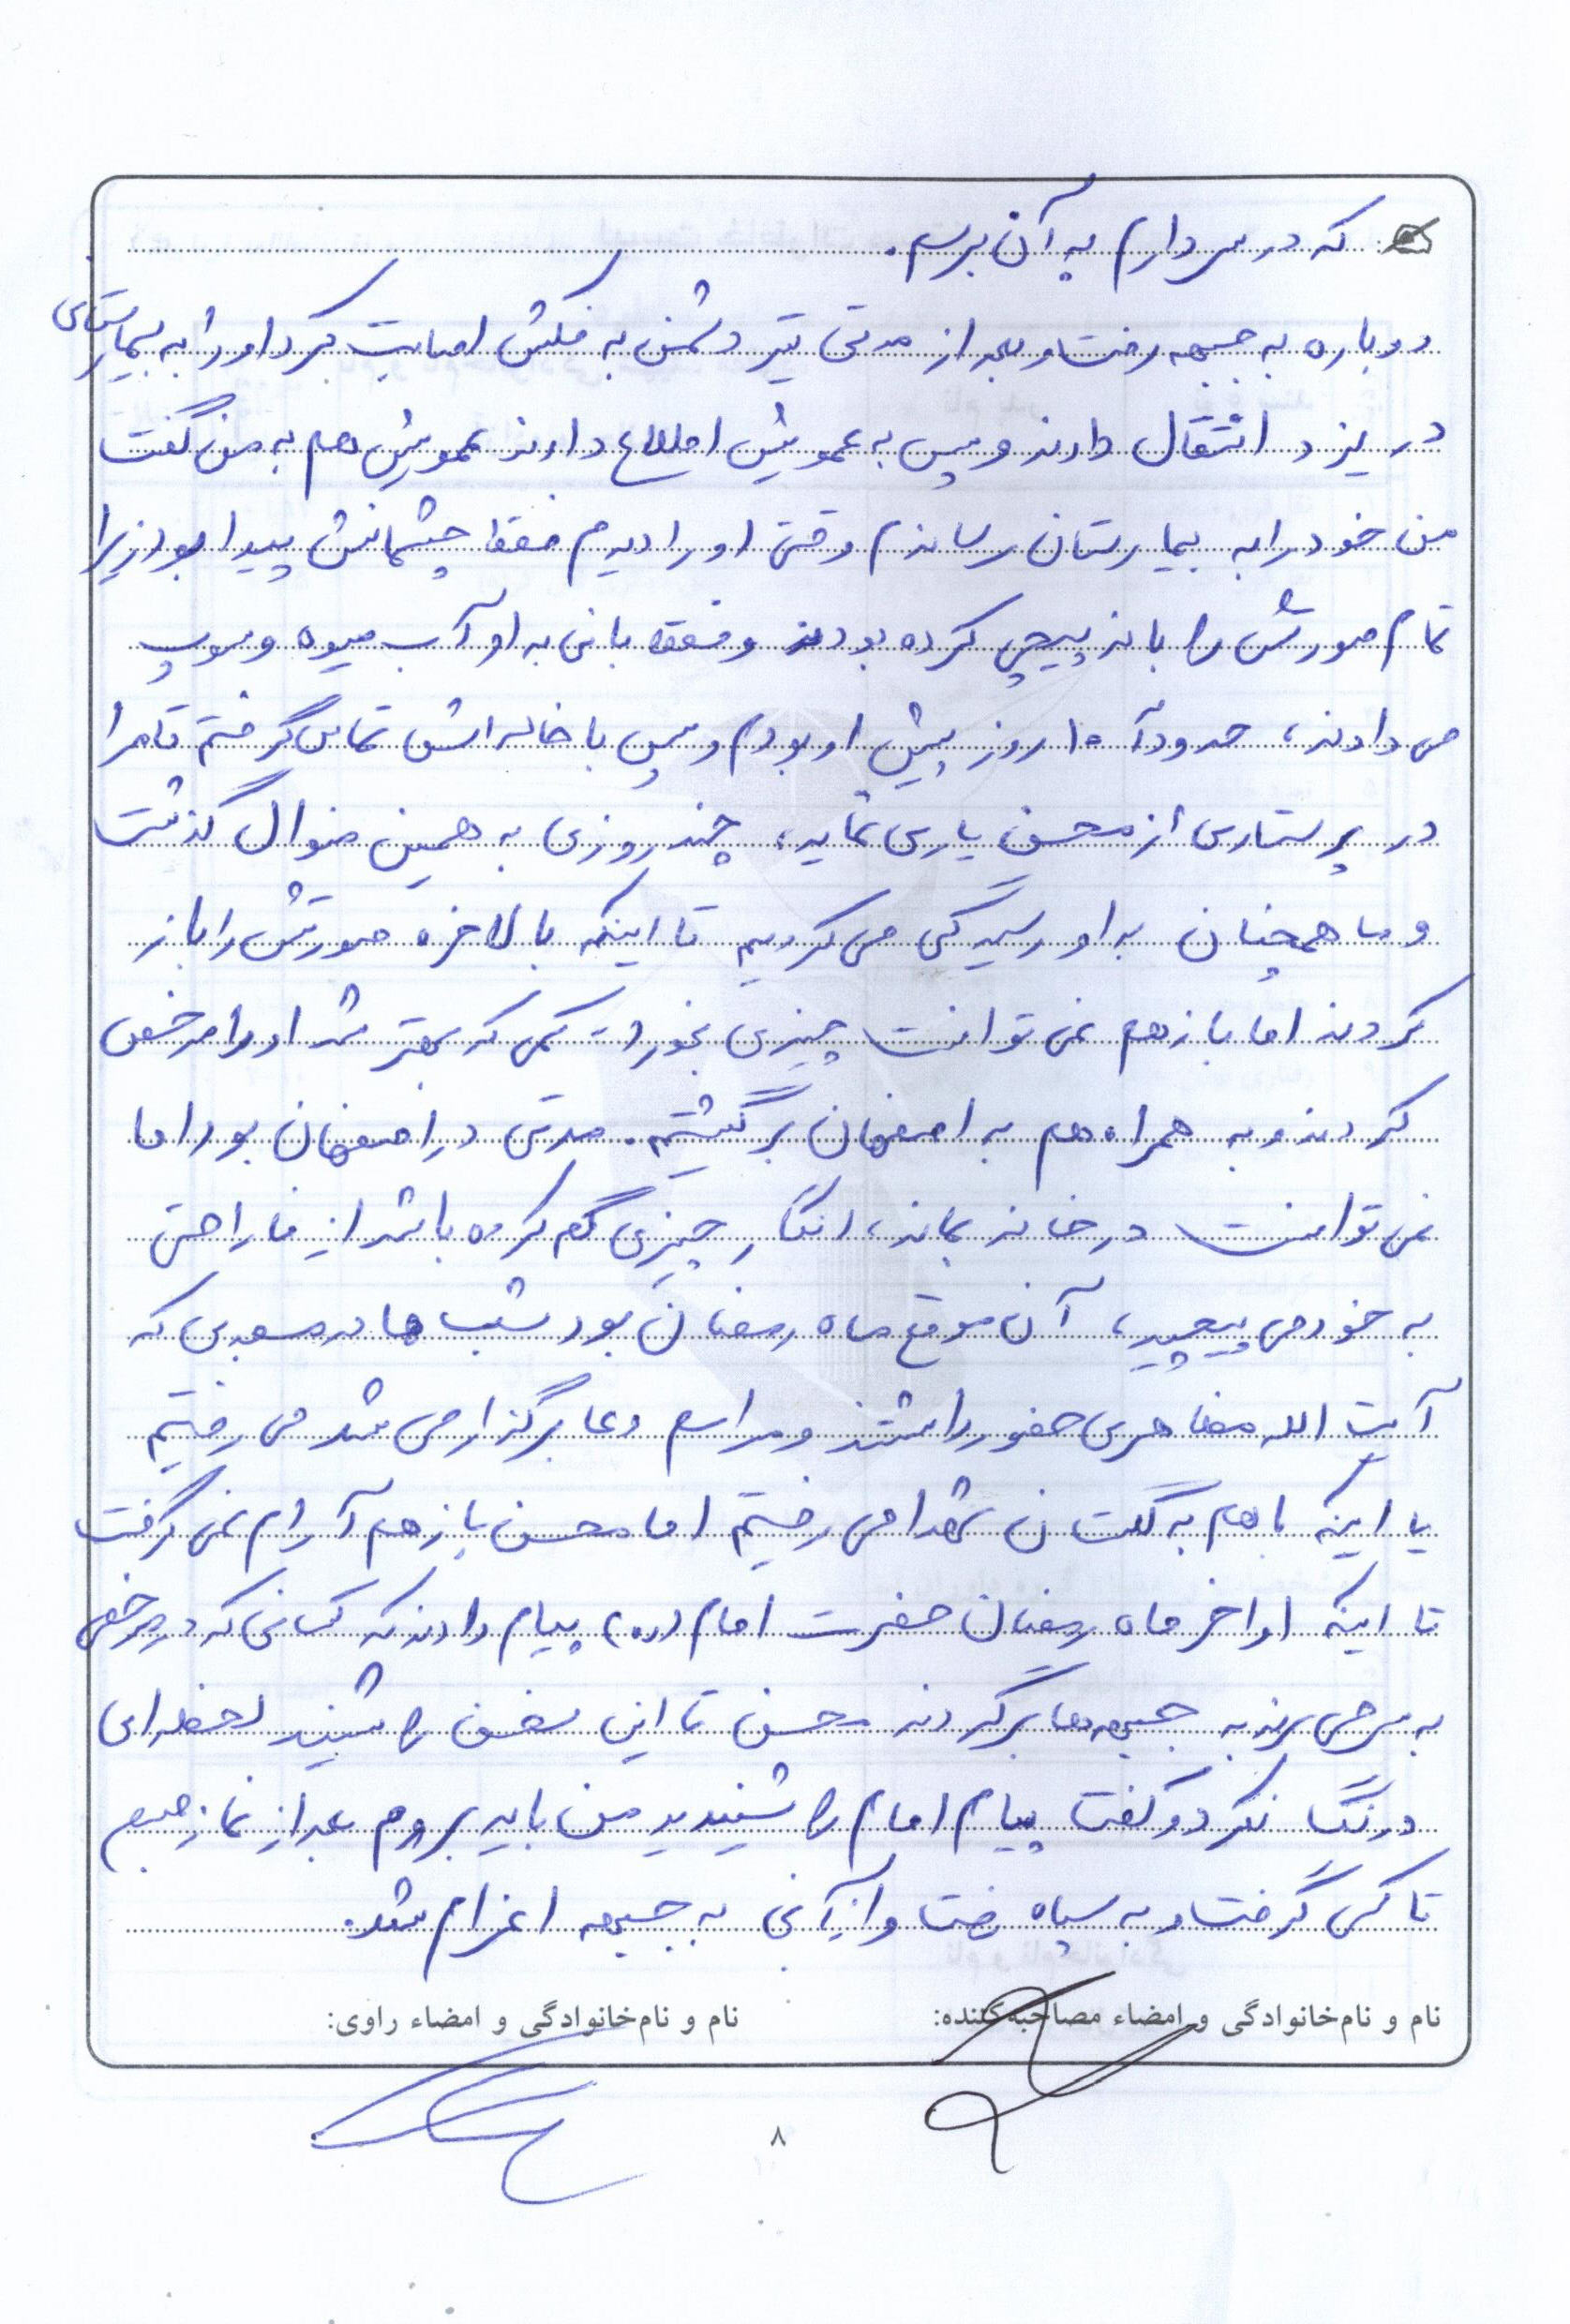 که در سر دارم به آن برسم.
دوباره به جبهه رفت و بعد از مدتی تیر دشمن به فکش اصابت کرد او را به بیمارستانی
در یزد انتقال دادند و سپس به عمویش اطلاع دادند عمویش هم به من گفت
من خود را به بیمارستان رساندم وقتی او را دیدم فقط چشمانش پیدا بود زیرا
تمام صورتش را باندپیچی کرده بودند و فقط با نی به او آب میوه و سوپ
می دادند، حدوداً ۱۵ روز پیش او بودم و سپس با خاله اش تماس گرفتم تا مرا
در پرستاری از محسن یاری نماید، چند روزی به همین منوال گذشت
و ما همچنان به او رسیدگی می کردیم تا اینکه بالاخره صورتش را باز
کردند اما باز هم نمی توانست چیزی بخورد، کمی که بهتر شد او را مرخص
کردند و به همراه هم به اصفهان برگشتیم. مدتی در اصفهان بود اما
نمی توانست در خانه بماند، انگار چیزی گم کرده باشد از ناراحتی
به خود می پیچید، آن موقع ماه رمضان بود شب ها در مسجدی که
آیت الله مظاهری حضور داشتند و مراسم دعا برگزار می شد می رفتیم
یا اینکه با هم به گلستان شهدا می رفتیم اما محسن باز هم آرام نمی گرفت
تا اینکه اواخر ماه رمضان حضرت امام (ره) پیام دادند که کسانی که در مرخصی
به سر می برند به جبهه ها برگردند محسن تا این سخن را شنید لحظه ای
درنگ نکرد و گفت پیام امام را شنیدید من باید بروم بعد از نماز صبح
تاکسی گرفت و به سپاه رفت و از آنجا به جبهه اعزام شد.
نام و نام‌خانوادگی و امضاء مصاحبه‌کننده: نام و نام‌خانوادگی و امضاء راوی:
۸